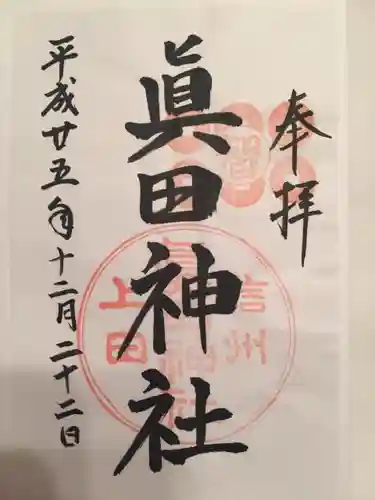 奉拝
眞田神社
信州
上田
眞田神社
平成廿五年十二月二十二日